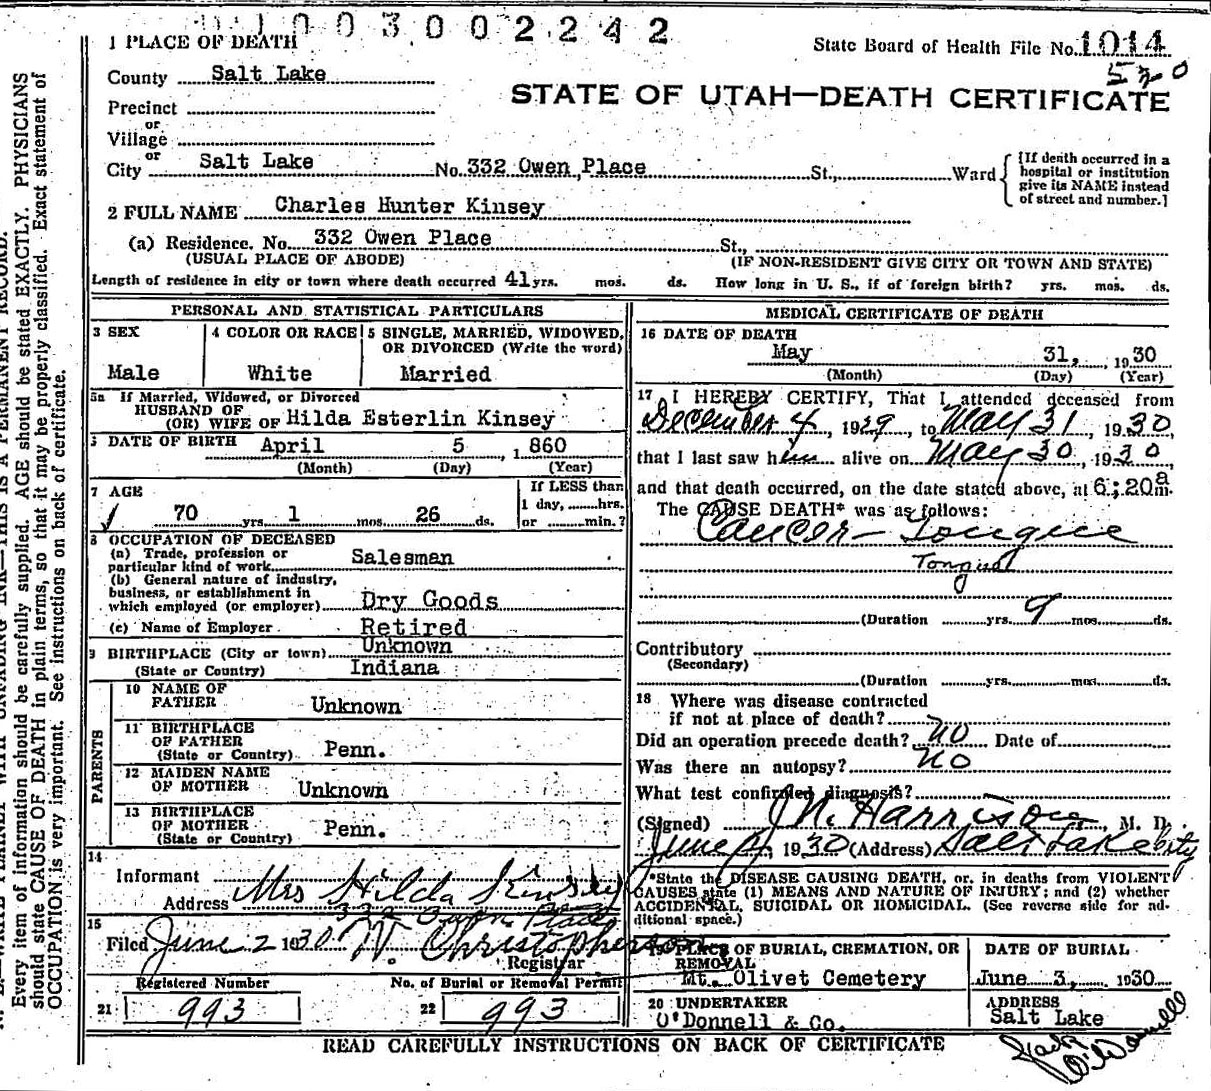 1003002242
1 PLACE OF DEATH
State Board of Health File No. 1014
520
County Salt Lake
STATE OF UTAH—DEATH CERTIFICATE
Precinct
or
Village
or
City Salt Lake No. 332 Owen Place St., Ward
[If death occurred in a
hospital or institution
give its NAME instead
of street and number.]
2 FULL NAME Charles Hunter Kinsey
(a) Residence. No. 332 Owen Place St.,
(USUAL PLACE OF ABODE) (IF NON-RESIDENT GIVE CITY OR TOWN AND STATE)
Length of residence in city or town where death occurred 41 yrs. mos. ds. How long in U. S., if of foreign birth? yrs. mos. ds.
PERSONAL AND STATISTICAL PARTICULARS
3 SEX
Male
4 COLOR OR RACE
White
5 SINGLE, MARRIED, WIDOWED,
OR DIVORCED (Write the word)
Married
5a If Married, Widowed, or Divorced
HUSBAND OF
(OR) WIFE OF Hilda Esterlin Kinsey
6 DATE OF BIRTH April 5, 1860
(Month) (Day) (Year)
7 AGE
70 yrs. 1 mos. 26 ds.
If LESS than
1 day, hrs.
or min.?
8 OCCUPATION OF DECEASED
(a) Trade, profession or
particular kind of work Salesman
(b) General nature of industry,
business, or establishment in
which employed (or employer) Dry Goods
(c) Name of Employer Retired
9 BIRTHPLACE (City or town) Unknown
(State or Country) Indiana
PARENTS
10 NAME OF
FATHER Unknown
11 BIRTHPLACE
OF FATHER
(State or Country) Penn.
12 MAIDEN NAME
OF MOTHER Unknown
13 BIRTHPLACE
OF MOTHER
(State or Country) Penn.
14
Informant Mrs Hilda Kinsey
Address 332 Owen Place
15
Filed June 2 1930 W. Christopherson
Registrar
Registered Number
21 993
No. of Burial or Removal Permit
22 993
MEDICAL CERTIFICATE OF DEATH
16 DATE OF DEATH
May 31, 1930
(Month) (Day) (Year)
17 I HEREBY CERTIFY, That I attended deceased from
December 4, 1929, to May 31, 1930,
that I last saw him alive on May 30, 1930
and that death occurred, on the date stated above, at 6:20 a m.
The CAUSE DEATH* was as follows:
Cancer – Tongue
Tongue
(Duration yrs. 9 mos. ds.
Contributory
(Secondary)
(Duration yrs. mos. ds.
18 Where was disease contracted
if not at place of death?
Did an operation precede death? no Date of
Was there an autopsy? no
What test confirmed diagnosis?
(Signed) J.N. Harrison, M. D.
June 4, 1930 (Address) Salt Lake City
*State the DISEASE CAUSING DEATH, or, in deaths from VIOLENT
CAUSES state (1) MEANS AND NATURE OF INJURY; and (2) whether
ACCIDENTAL, SUICIDAL OR HOMICIDAL. (See reverse side for ad-
ditional space.)
19 PLACE OF BURIAL, CREMATION, OR
REMOVAL
Mt. Olivet Cemetery
DATE OF BURIAL
June 3, 1930
20 UNDERTAKER
O'Donnell & Co.
ADDRESS
Salt Lake
Jack O'Donnell
READ CAREFULLY INSTRUCTIONS ON BACK OF CERTIFICATE
WRITE PLAINLY WITH UNFADING INK—THIS IS A PERMANENT RECORD.
Every item of information should be carefully supplied. AGE should be stated EXACTLY. PHYSICIANS
should state CAUSE OF DEATH in plain terms, so that it may be properly classified. Exact statement of
OCCUPATION is very important. See instructions on back of certificate.